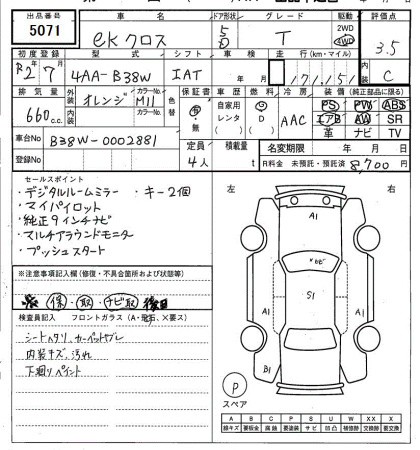 出品番号 車名 ドア形状 グレード 駆動 評価点
5071 eKクロス 5D T 2WD 4WD 3.5
初度登録 型式 シフト 車検 走行(km・マイル) 内装
R2年7月 4AA-B38W IAT 年 月 171,151 C
排気量 外装色 カラーNo. 色替 保証書 車歴 燃料 冷房 装備(純正部品に限る)
660c.c. オレンジ M11 有・無 自家用 レンタ G D AAC PS PW ABS
エアB AW SR
革 ナビ TV
内装色 カラーNo.
車台No B38W-0002881 定員 積載量 名変期限 年 月 日
登録No 4人 t R料金 未預託・預託済 8,700円
セールスポイント
・デジタルルームミラー ・キー2個
・マイパイロット
・純正9インチナビ
・マルチアラウンドモニター
・プッシュスタート
※注意事項記入欄(修復・不具合箇所および状態等)
保 取 ナビ取
検査員記入 フロントガラス(A・飛石、×要ス)
シートヘタリ、カーペットズレ
内装キズ、汚れ
下廻りペイント
左 右
A1
ナビ
S1
A1 A1
B1
P
スペア
A B C P S U W XX X
線キズ 要板金 腐蝕 要塗装 サビ 凹凸 補修跡 交換跡 要交換